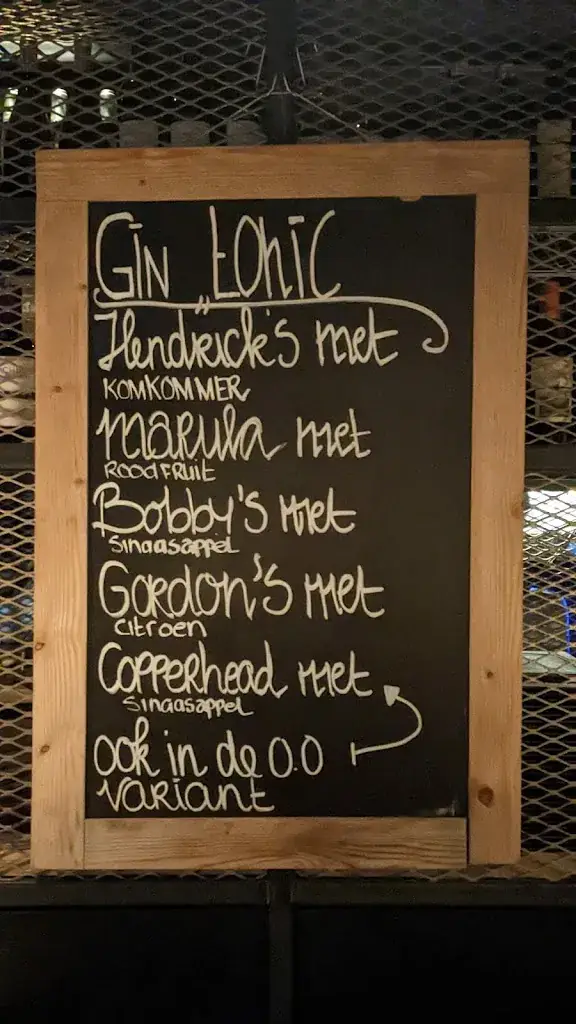 Gin tonic
Hendrick's met
KOMKOMMER
Marula met
ROOD FRUIT
Bobby's met
Sinaasappel
Gordon's met
citroen
Copperhead met
Sinaasappel
ook in de 0.0
variant